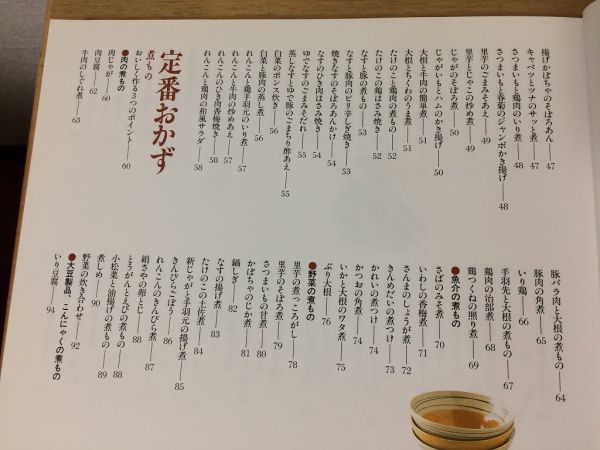 揚げかぼちゃのそぼろあん——47
キャベツとツナのサッと煮——47
さつまいもと鶏肉のいり煮——48
さつまいもと春菊のジャンボかき揚げ——48
里芋のごまみそあえ——49
里芋とじゃこの炒め煮——49
じゃがのそぼろ煮——50
じゃがいもとハムのかき揚げ——50
大根と牛肉の簡単煮——51
大根とちくわのうま煮——51
たけのこと鶏肉の煮もの——52
たけのこの鶏はさみ焼き——52
なすと豚肉の煮もの——53
なすと豚肉のピリ辛しぎ焼き——53
焼きなすのそぼろあんかけ——54
なすのひき肉はさみ焼き——54
ゆでなすのごまみそだれ——55
蒸しなすとゆで豚のごまちり酢あえ——55
白菜と豚肉の蒸し煮——56
白菜のポンス炊き——56
れんこんと鶏手羽元のいり煮——57
れんこんと牛肉の炒めあえ——57
れんこんのひき肉香梅焼き——58
れんこんと鶏肉の和風サラダ——58
定番おかず
煮もの
おいしく作る3つのポイント——60
●肉の煮もの
肉じゃが——60
肉豆腐——62
牛肉のしぐれ煮——63
豚バラ肉と大根の煮もの——64
豚肉の角煮——65
いり鶏——66
手羽先と大根の煮もの——67
鶏肉の治部煮——68
鶏つくねの照り煮——69
●魚介の煮もの
さばのみそ煮——70
いわしの香梅煮——71
さんまのしょうが煮——72
きんめだいの煮つけ——73
かれいの煮つけ——74
かつおの角煮——74
いかと大根のワタ煮——75
ぶり大根——76
●野菜の煮もの
里芋の煮っころがし——78
里芋のそぼろ煮——79
さつまいもの甘煮——80
かぼちゃのじか煮——81
鍋しぎ——82
なすの揚げ煮——83
たけのこの土佐煮——84
新じゃがと手羽元の揚げ煮——85
きんぴらごぼう——86
れんこんのきんぴら煮——87
絹さやの卵とじ——88
とうがんとえびの煮もの——88
小松菜と油揚げの煮もの——89
煮しめ——90
野菜の炊き合わせ——92
●大豆製品、こんにゃくの煮もの
いり豆腐——94